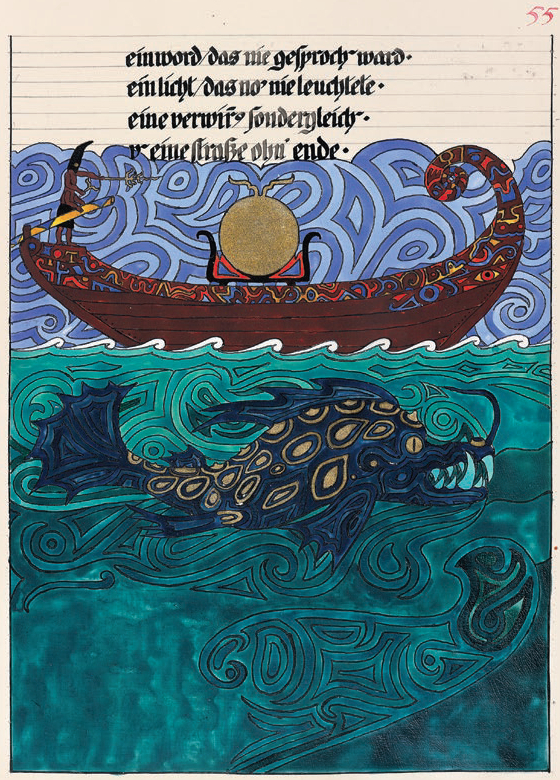 55
ein word/das nie gesproch' ward·
ein licht/das no' nie leuchtete·
eine verwirr' sondergleich'·
eine straße ohn' ende·